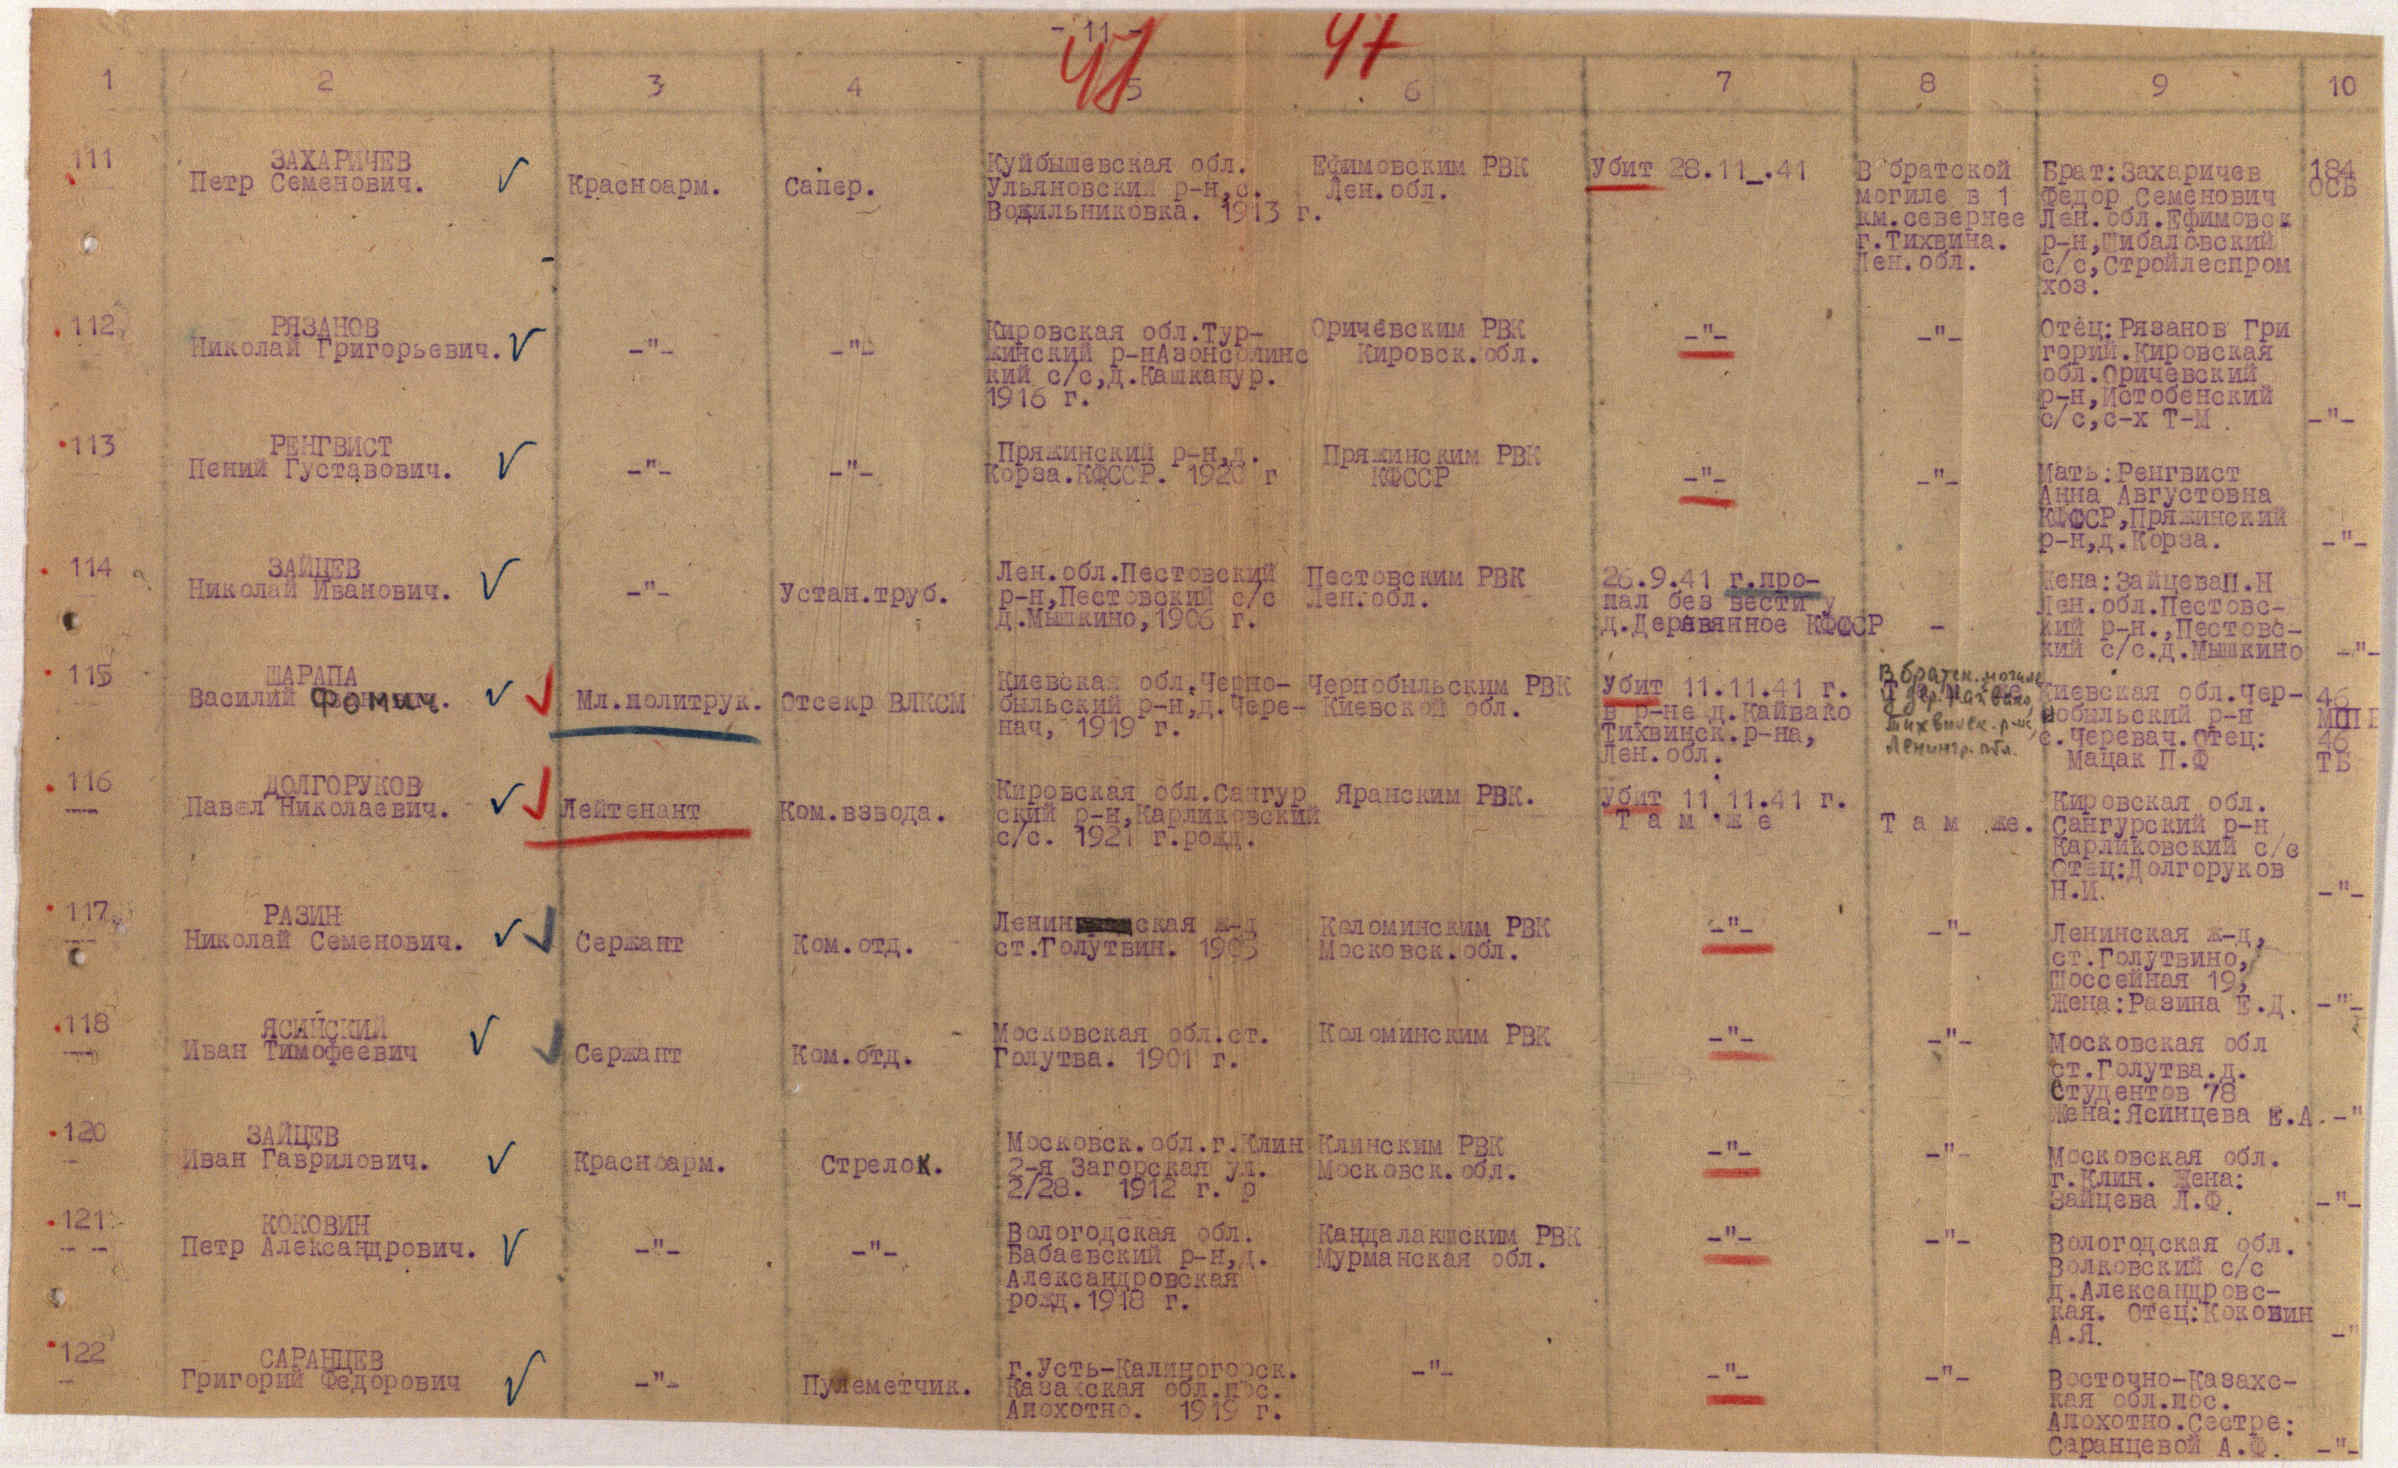 - 11 -
47 47
1 2 3 4 5 6 7 8 9 10
111 ЗАХАРИЧЕВ
Петр Семенович. Красноарм. Сапер.
Куйбышевская обл.
Ульяновский р-н,с.
Водильниковка. 1913 г.
Ефимовским РВК
Лен.обл.
Убит 28.11_.41
В братской
могиле в 1
км.севернее
г.Тихвина.
Лен.обл.
Брат:Захаричев
Федор Семенович
Лен.обл.Ефимовск
р-н,Шибаловский
с/с,Стройлеспром
хоз.
184
ОСБ
112 РЯЗАНОВ
Николай Григорьевич. -"- -"-
Кировская обл.Тур-
жинский р-нАзонсолинс
кий с/с,д.Кашканур.
1916 г.
Оричевским РВК
Кировск.обл.
-"- -"-
Отец:Рязанов Гри
горий.Кировская
обл.Оричевский
р-н,Истобенский
с/с,с-х Т-М. -"-
113 РЕНГВИСТ
Пений Густавович. -"- -"-
Пряжинский р-н,д.
Корза.КФССР. 1920 г
Пряжинским РВК
КФССР
-"- -"-
Мать:Ренгвист
Анна Августовна
КФССР,Пряжинский
р-н,д.Корза. -"-
114 ЗАЙЦЕВ
Николай Иванович. -"- Устан.труб.
Лен.обл.Пестовский
р-н,Пестовский с/с
д.Мышкино,1906 г.
Пестовским РВК
Лен.обл.
26.9.41 г.про-
пал без вести у
д.Деравянное КФССР -
Жена:ЗайцеваП.Н
Лен.обл.Пестовс-
кий р-н.,Пестовс-
кий с/с.д.Мышкино -"-
115 ШАРАПА
Василий Фомич. Мл.политрук. Отсекр ВЛКСМ
Киевская обл.Черно-
быльский р-н,д.Чере-
нач, 1919 г.
Чернобыльским РВК
Киевской обл.
Убит 11.11.41 г.
в р-не д.Кайвако
Тихвинск.р-на,
Лен.обл.
В братск.могиле
у дер. Кайвако,
Тихвинск.р-на,
Ленингр.обл.
Киевская обл.Чер-
нобыльский р-н
с.Черевач.Отец:
Мацак П.Ф
46
МСПБ
46
ТБ
116 ДОЛГОРУКОВ
Павел Николаевич. Лейтенант Ком.взвода.
Кировская обл.Сангур
ский р-н,Карликовский
с/с. 1921 г.рожд.
Яранским РВК.
Убит 11 11.41 г.
Т а м ж е Т а м же.
Кировская обл.
Сангурский р-н
Карликовский с/с
Отец:Долгоруков
Н.И. -"-
117 РАЗИН
Николай Семенович. Сержант Ком.отд.
Ленинская ж-д
ст.Голутвин. 1903
Коломинским РВК
Московск.обл.
-"- -"-
Ленинская ж-д,
ст.Голутвино,
Шоссейная 19,
Жена:Разина Е.Д. -"-
118 ЯСИНСКИЙ
Иван Тимофеевич Сержант Ком.отд.
Московская обл.ст.
Голутва. 1901 г.
Коломинским РВК
-"- -"-
Московская обл
ст.Голутва.д.
Студентов 78
Жена:Ясинцева Е.А. -"
120 ЗАЙЦЕВ
Иван Гаврилович. Красноарм. Стрелок.
Московск.обл.г.Клин
2-я Загорская ул.
2/28. 1912 г. р
Клинским РВК
Московск.обл.
-"- -"-
Московская обл.
г.Клин. Жена:
Зайцева Л.Ф. -"-
121 КОКОВИН
Петр Александрович. -"- -"-
Вологодская обл.
Бабаевский р-н,д.
Александровская
рожд.1918 г.
Кандалакшским РВК
Мурманская обл.
-"- -"-
Вологодская обл.
Волковский с/с
д.Александровс-
кая. Отец:Коковин
А.Я. -"
122 САРАНЦЕВ
Григорий Федорович -"- Пулеметчик.
г.Усть-Калиногорск.
Казахская обл.пос.
Апохотно. 1919 г.
-"- -"- -"-
Восточно-Казахс-
кая обл.пос.
Апохотно.Сестре:
Саранцевой А.Ф. -"-